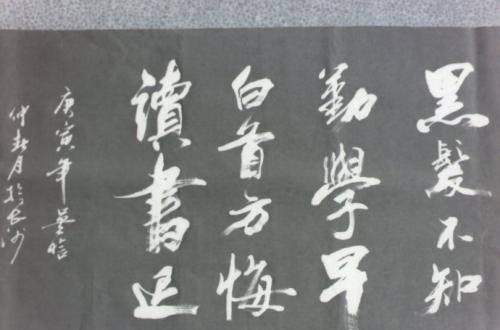 黑髮不知
勤學早
白首方悔
讀書遲
庚寅年
仲春月於長沙